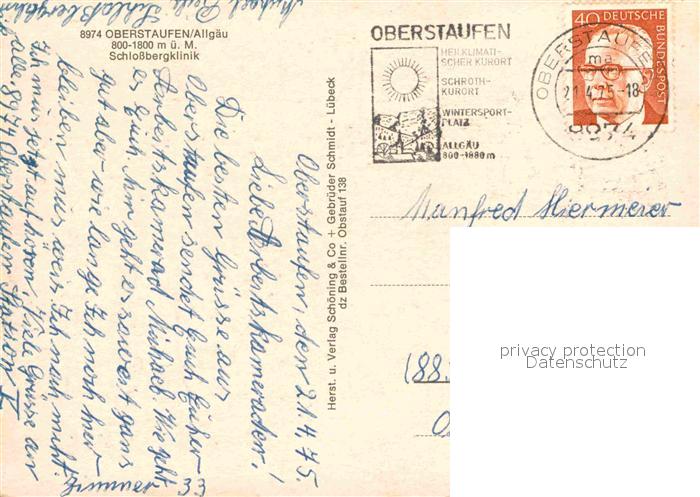 8974 OBERSTAUFEN/Allgäu
800-1800 m ü. M.
Schloßbergklinik
OBERSTAUFEN
HEILKLIMATI-
SCHER KURORT
SCHROTH-
KURORT
WINTERSPORT-
PLATZ
ALLGÄU
800-1880 m
OBERSTAUFEN
ma
21.4.75-18
8974
40 DEUTSCHE
BUNDESPOST
Oberstaufen, den 21.4.75.
Liebe Arbeitskameraden!
Die besten Grüsse aus
Oberstaufen sendet Euch Euher
Arbeitskamerad Michael. Wie geht
es Euch. Mir geht es soweit ganz
gut aber wie lange Ich noch hier
bleiben mus weis Ich noch nicht.
Ich mus jetzt aufhören. Viele Grüsse an
alle 8974 Oberstaufen Station I
Zimmer 33
Michael Schloßbergklinik
Herst. u. Verlag Schöning & Co + Gebrüder Schmidt - Lübeck
dz Bestellnr. Obstauf 138
Manfred Hiermeier
(88
privacy protection
Datenschutz